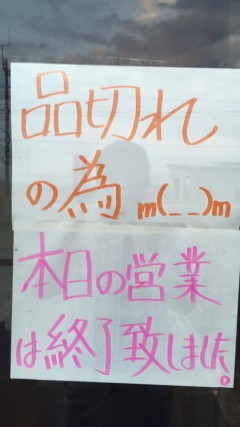 品切れ
の為 m(_ _)m
本日の営業
は終了致しました。